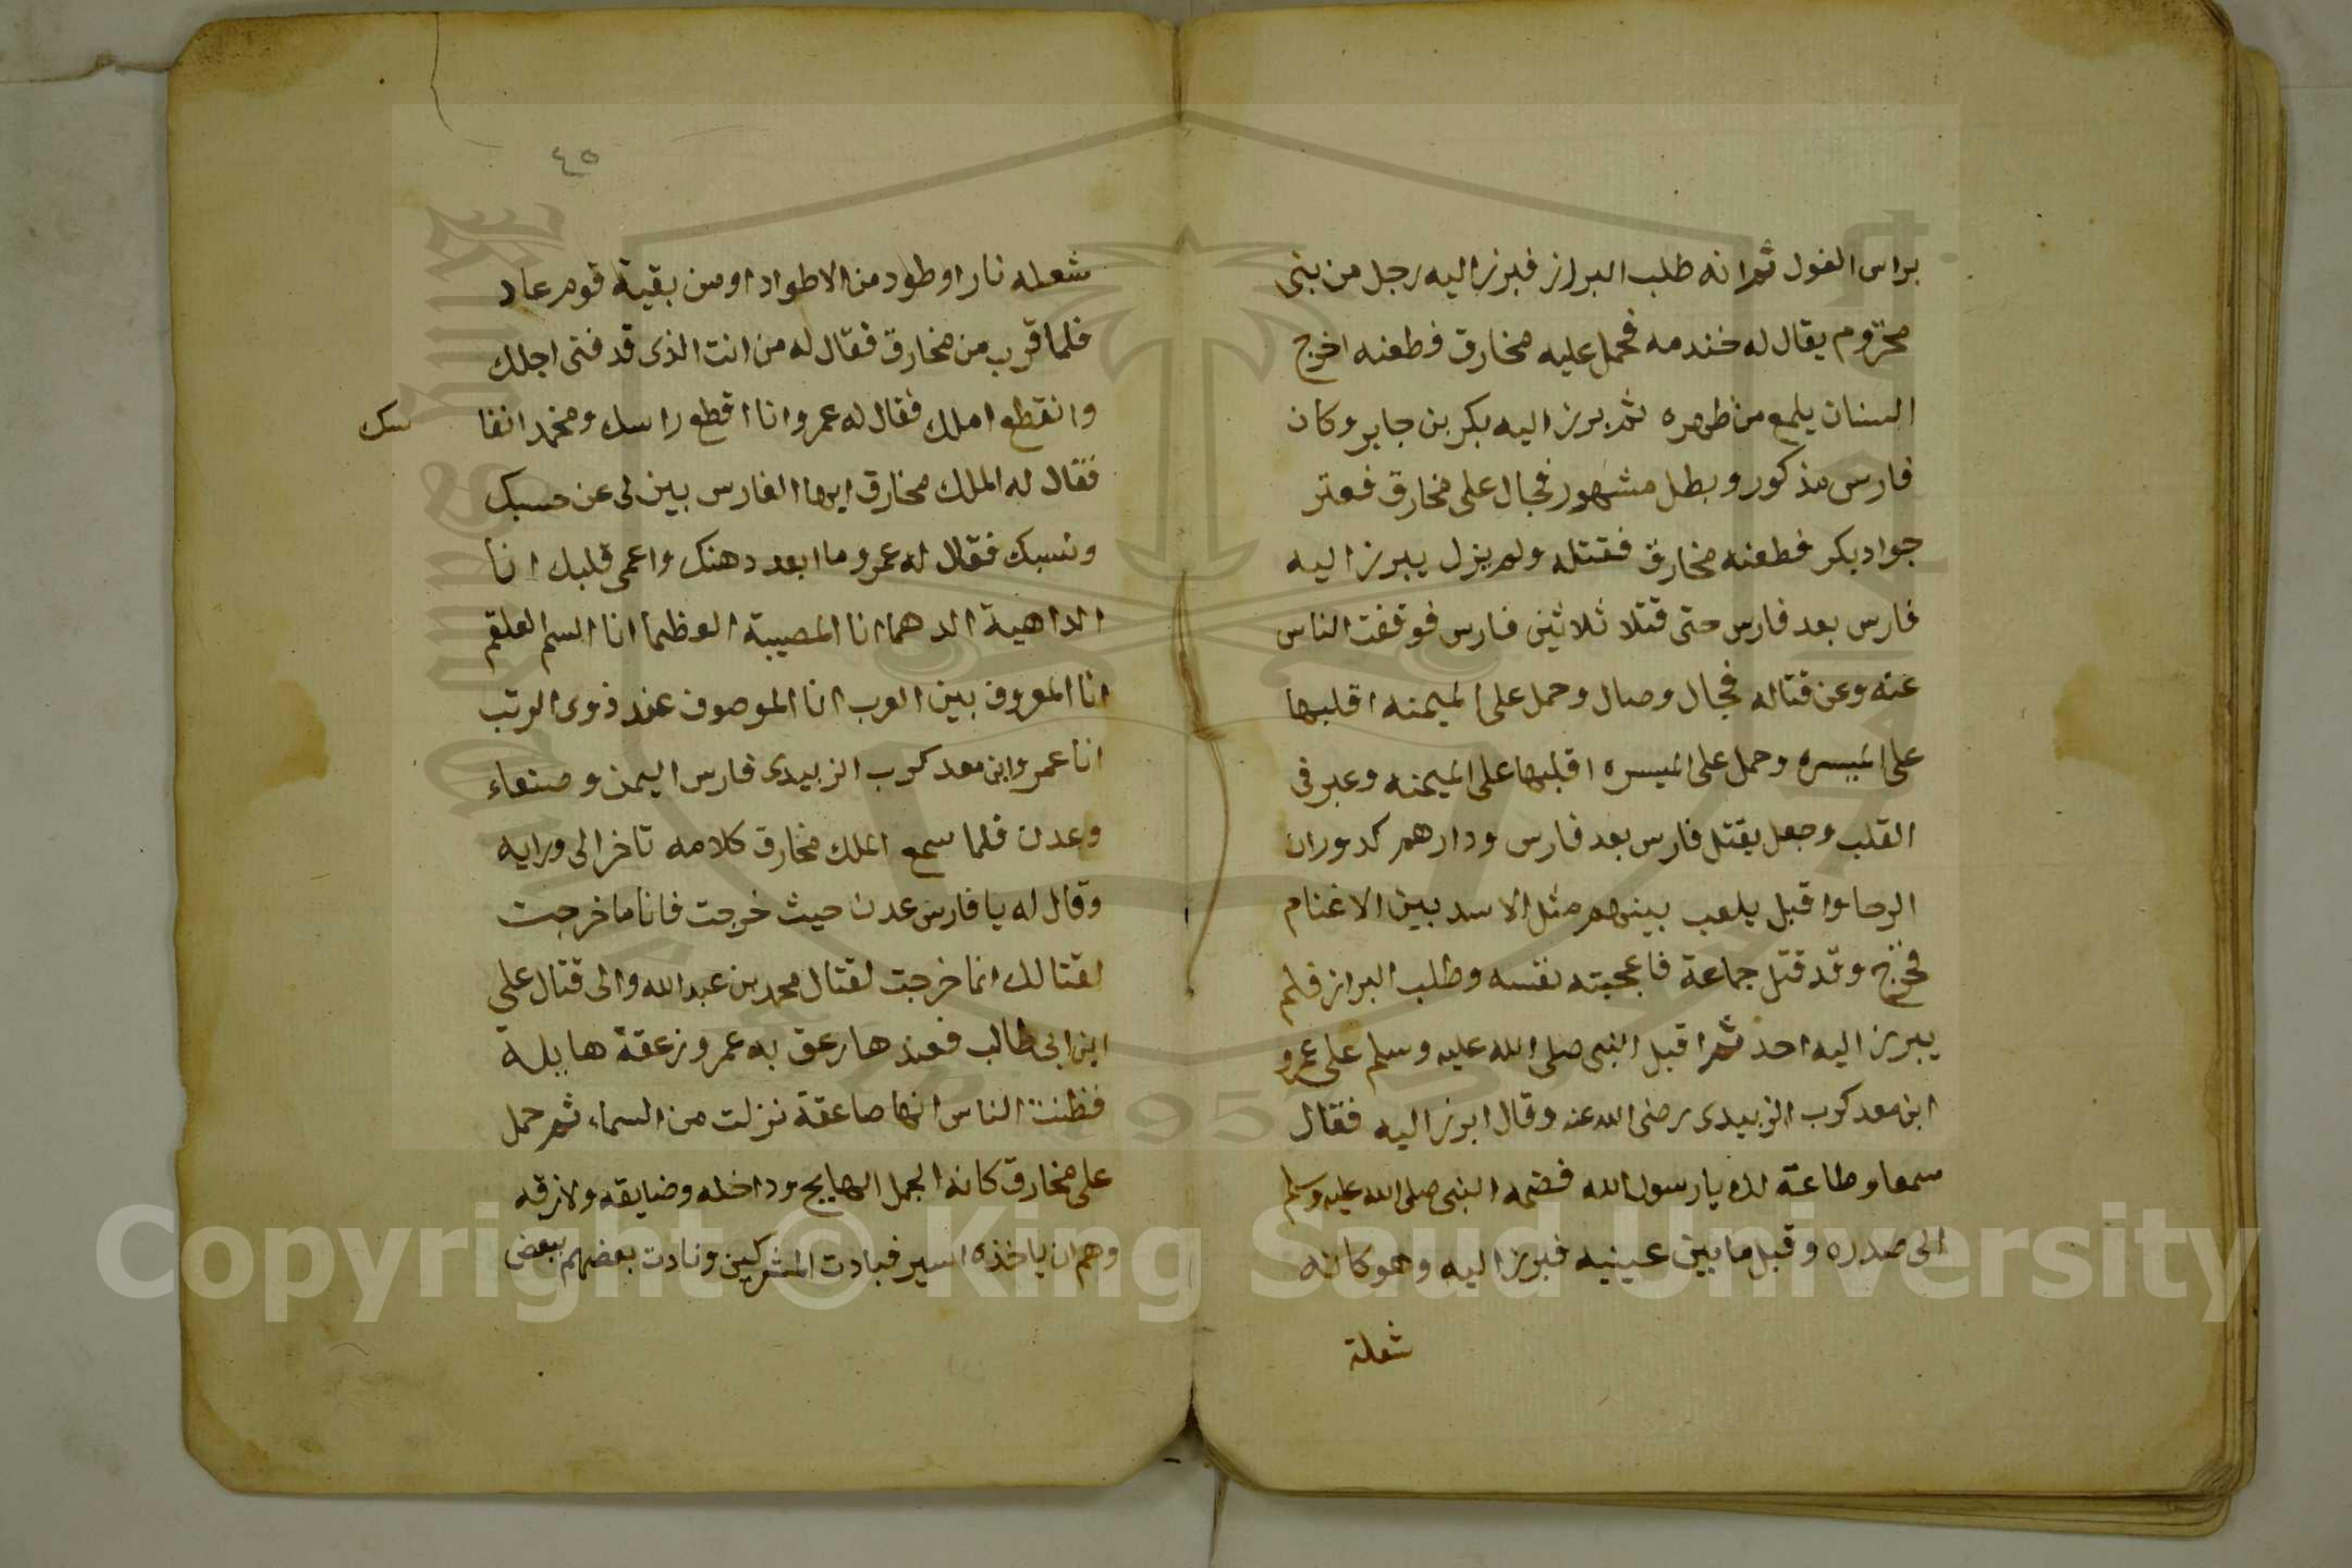 براس الغول ثم انه طلب البراز فبرز اليه رجل من بنى
مخزوم يقال له خندمه فحمل عليه مخارق فطعنه اخرج
السنان يلمع من ظهره ثم برز اليه بكر بن جابر وكان
فارس مذكور وبطل مشهور فجال على مخارق فعتر
جواد بكر فطعنه مخارق فقتله ولم يزل يبرز اليه
فارس بعد فارس حتى قتلا ثلاثين فارس فوقفت الناس
عنه وعن قتاله فجال وصال وحمل على الميمنه اقلبها
على الميسره وحمل على الميسره اقلبها على الميمنه وعبر فى
القلب وجعل يقتل فارس بعد فارس ودارهم كدوران
الرحا واقبل يلعب بينهم مثل الاسد بين الاغنام
فخرج وقد قتل جماعة فاعجبته نفسه وطلب البراز فلم
يبرز اليه احد ثم اقبل النبى صلى الله عليه وسلم على عمرو
ابن معد كرب الزبيدى رضى الله عنه وقال ابرز اليه فقال
سمعا وطاعة لله يارسول الله فضمه النبى صلى الله عليه وسلم
الى صدره وقبل ما بين عينيه فبرز اليه وهو كانه
شعلة
٤٥
شعله نار او طود من الاطواد او من بقية قوم عاد
فلما قرب من مخارق فقال له من انت الذى قد فنى اجلك
وانقطع املك فقال له عمرو انا اقطع راسك ومخمد انفا
سك
فقال له الملك مخارق ايها الفارس بين لى عن حسبك
ونسبك فقال له عمرو ما ابعد دهنك واعمى قلبك انا
الداهية الدهما انا المصيبة العظما انا السم العلقم
انا المعروف بين العرب انا الموصوف عند ذوى الرتب
انا عمرو ابن معد كرب الزبيدى فارس اليمن وصنعاء
وعدن فلما سمع الملك مخارق كلامه تاخر الى ورايه
وقال له يا فارس عدن حيث خرجت فانا ما خرجت
لقتالك انما خرجت لقتال محمد بن عبد الله والى قتال على
ابن ابى طالب فعندها زعق به عمرو زعقة هايلة
فظنت الناس انها صاعقة نزلت من السماء ثم حمل
على مخارق كانه الجمل الهايج وداخله وضايقه ولازقه
وهم ان ياخذه اسير فبادت المشركين ونادت بعضهم ببعض
Copyright © King Saud University